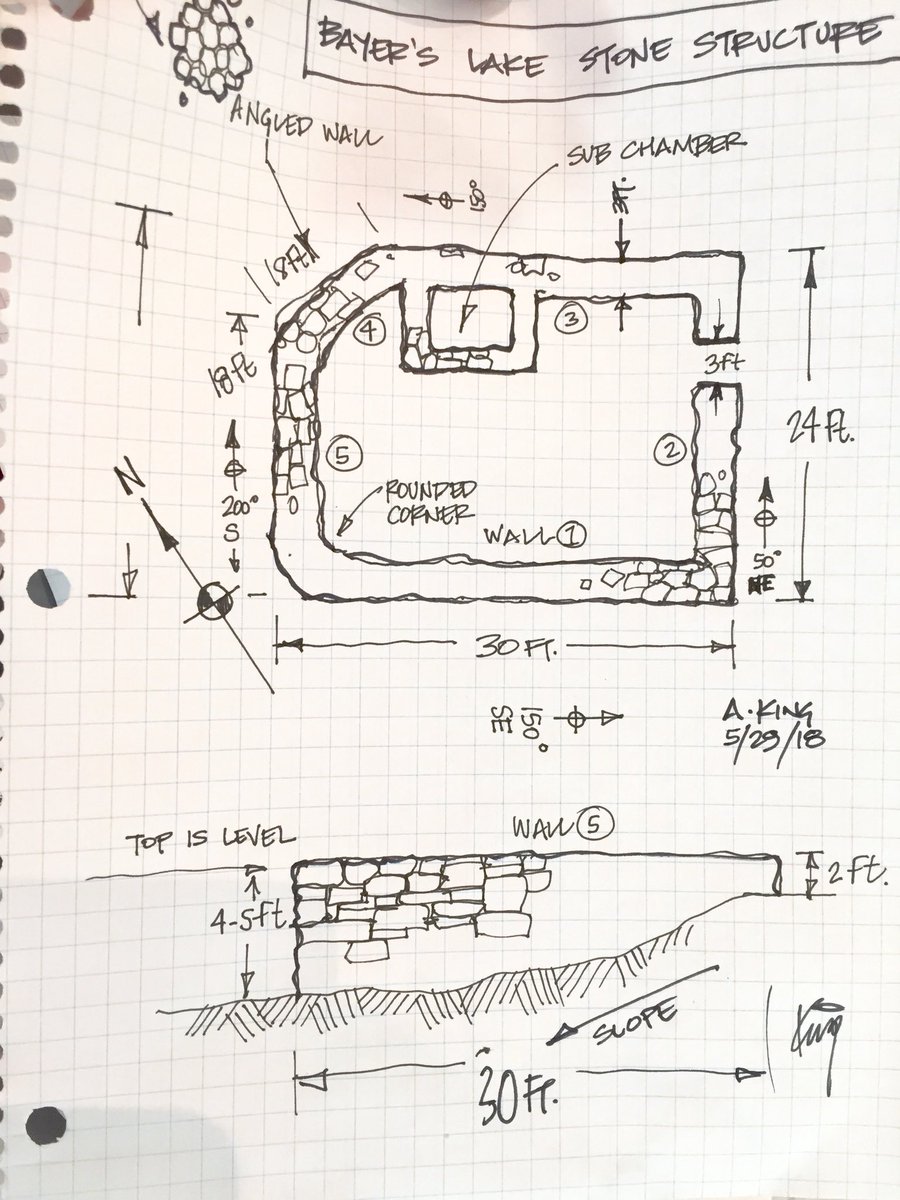 BAYER'S LAKE STONE STRUCTURE
ANGLED WALL
SUB CHAMBER
150°
3FT.
18ft
4
3
18ft
3ft
24 ft.
5
2
N
200°
S
ROUNDED
CORNER
WALL 1
50°
NE
30 FT.
SE
150°
A. KING
5/29/18
WALL 5
TOP IS LEVEL
2 ft.
4-5ft
SLOPE
King
30 FT.